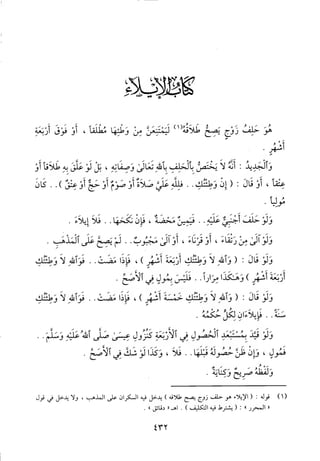 كتاب الإيلاء
هو حلف زوج يصح طلاقه(١) ليمتنعن من وطئها مطلقا ، أو فوق أربعة
أشهر .
والجديد : أنه لا يختص بالحلف بالله تعالى وصفاته ، بل لو علق به طلاقا أو
عتقا ، أو قال : ( إن وطئتك .. فلله علي صلاة أو صوم أو حج أو عتق ) .. كان
موليا .
ولو حلف أجنبي عليه .. فيمين محضة ، فإن نكحها .. فلا إيلاء .
ولو آلى من رتقاء ، أو قرناء ، أو آلى مجبوب .. لم يصح على المذهب .
ولو قال : ( والله لا وطئتك أربعة أشهر ) ، فإذا مضت .. فوالله لا وطئتك
أربعة أشهر ) وهكذا مرارا .. فليس بمول في الأصح .
ولو قال : ( والله لا وطئتك خمسة أشهر ) ، فإذا مضت .. فوالله لا وطئتك
سنة .. فإيلاءان لكل حكمه .
ولو قيد بمستبعد الحصول في الأربعة كنزول عيسى صلى الله عليه وسلم ..
فمول ، وإن ظن حصوله قبلها .. فلا ، وكذا لو شك في الأصح .
ولفظه صريح وكناية .
(١) قوله : ( الإيلاء هو حلف زوج يصح طلاقه ) يدخل فيه السكران على المذهب ، ولا يدخل في قول
« المحرر » : ( يشترط فيه التكليف ) . اهـ « دقائق » .
٤٣٢